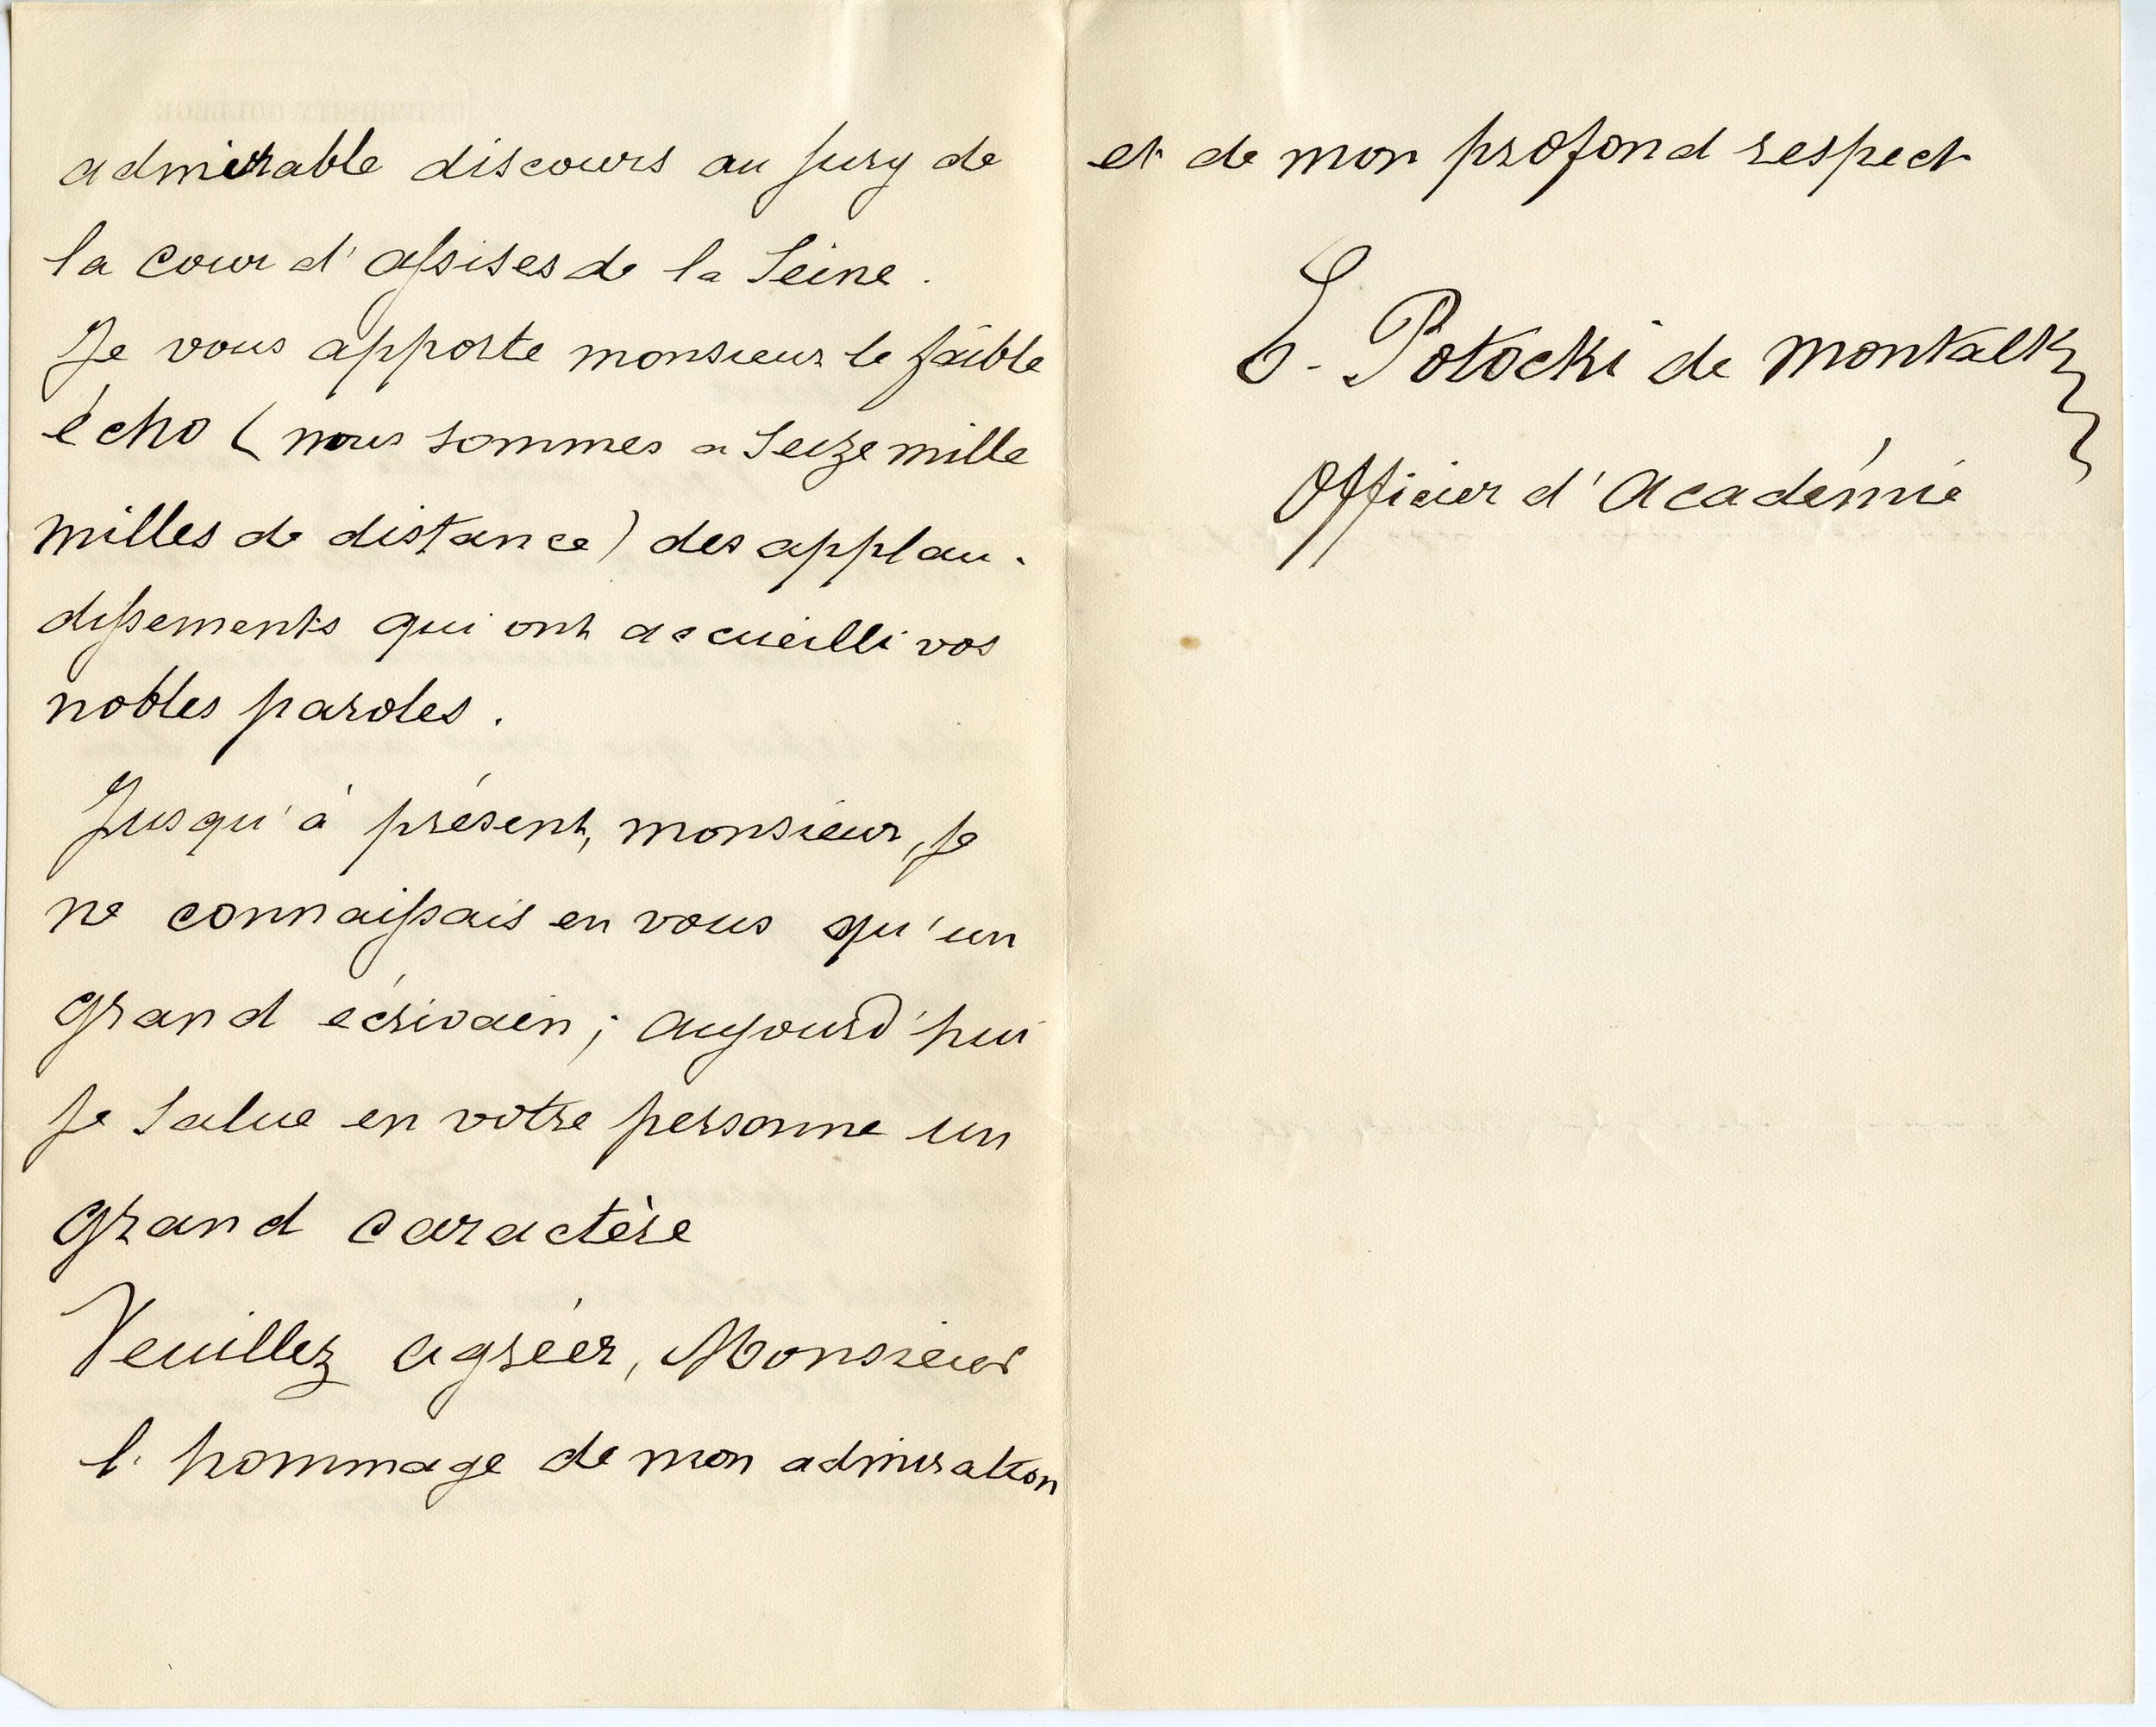 admirable discours au jury de
la cour d'assises de la Seine.
Je vous apporte monsieur le faible
écho (nous sommes a Seize mille
milles de distance) des applau-
dissements qui ont accueilli vos
nobles paroles.
Jusqu'à présent, monsieur, je
ne connaissais en vous qu'un
grand écrivain; aujourd'hui
je salue en votre personne un
grand caractère
Veuillez agréer, Monsieur
l'hommage de mon admiration
et de mon profond respect
Potocki de Montalk
Officier d'Académie